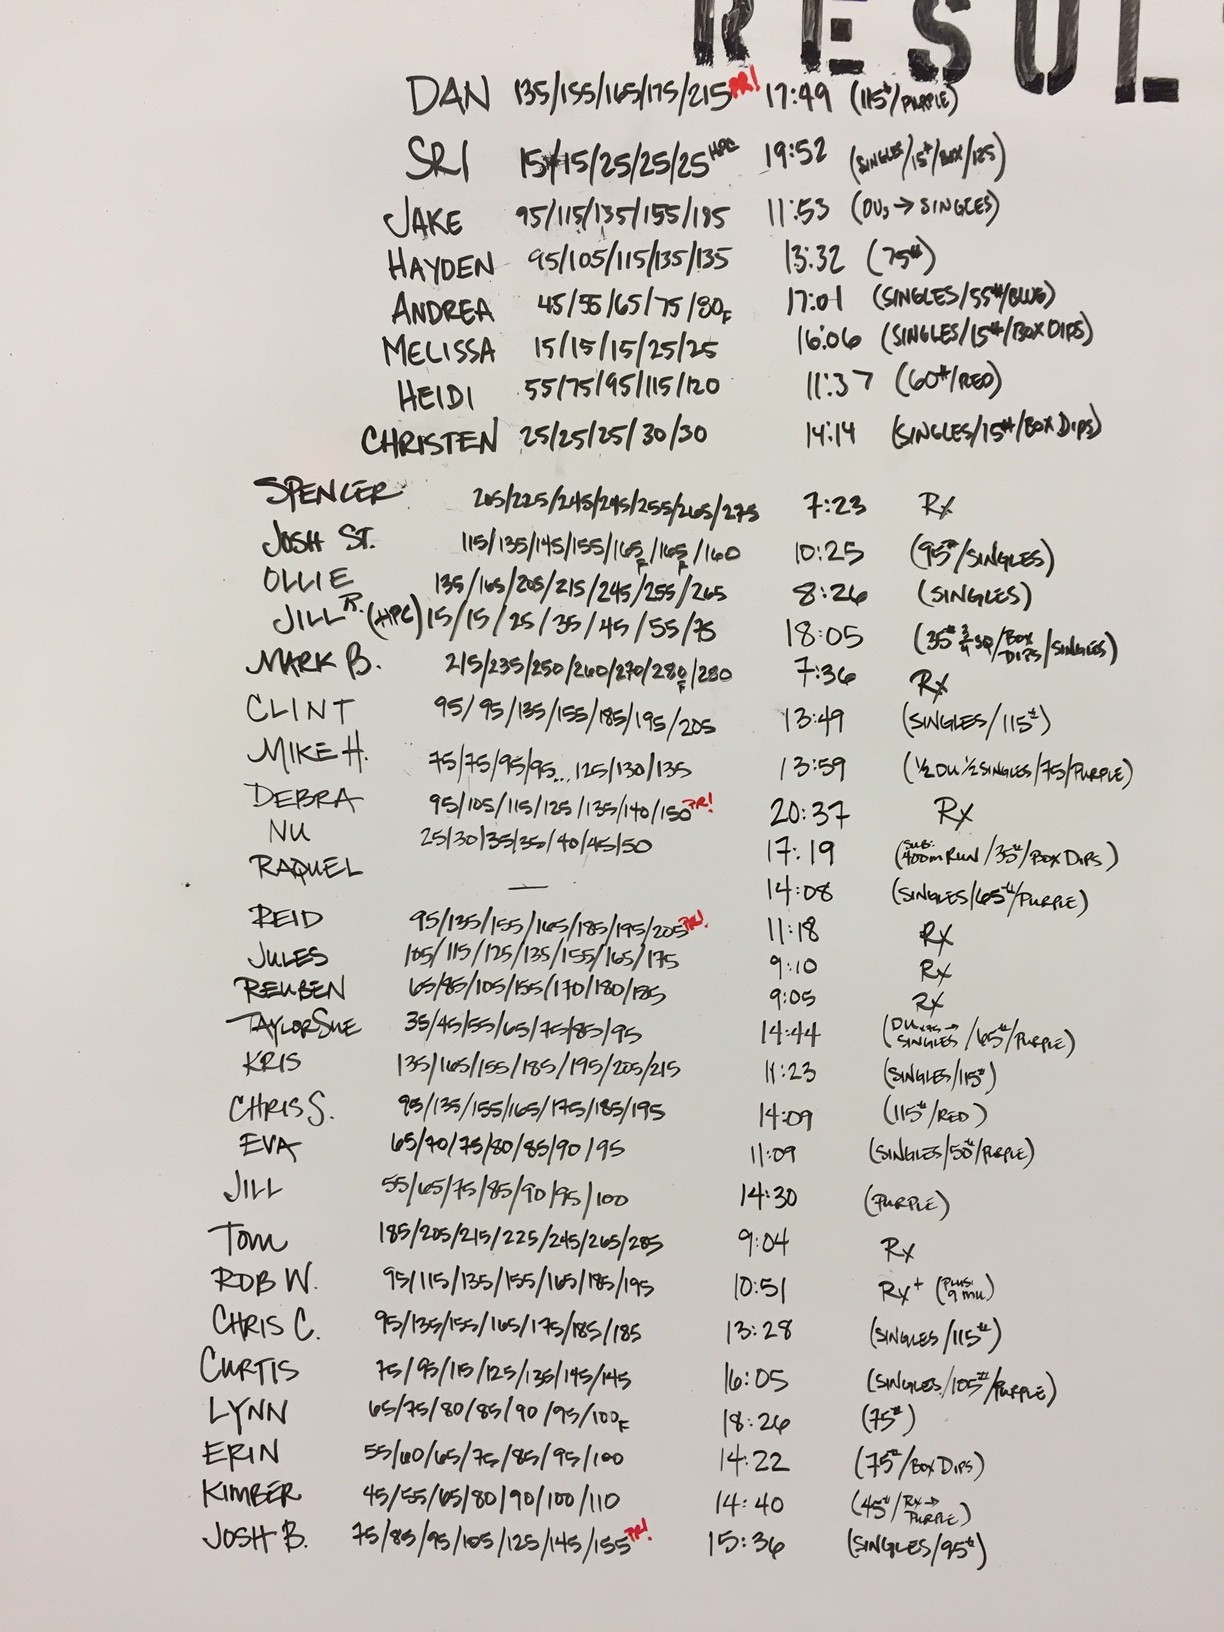 RESUL
DAN 135/155/165/175/215 PR! 17:49 (115#/PURPLE)
SRI 15/15/25/25/25 HPC 19:52 (SINGLES/15#/BOX/125)
JAKE 95/115/135/155/185 11:53 (DUs → SINGLES)
HAYDEN 95/105/115/135/135 13:32 (75#)
ANDREA 45/55/65/75/80F 17:01 (SINGLES/55#/BLUE)
MELISSA 15/15/15/25/25 16:06 (SINGLES/15#/BOX DIPS)
HEIDI 55/75/95/115/120 11:37 (60#/RED)
CHRISTEN 25/25/25/30/30 14:14 (SINGLES/15#/BOX DIPS)
SPENCER 205/225/245/245/255/265/275 7:23 Rx
JOSH ST. 115/135/145/155/165F/165F/160 10:25 (95#/SINGLES)
OLLIE 135/165/205/215/245/255/265 8:26 (SINGLES)
JILL R. (HPC) 15/15/25/35/45/55/75 18:05 (35# 3/4 SQ/BOX DIPS/SINGLES)
MARK B. 215/235/250/260/270/280F/280 7:36 Rx
CLINT 95/95/135/155/185/195/205 13:49 (SINGLES/115#)
MIKE H. 75/75/95/95...125/130/135 13:59 (1/2 DU 1/2 SINGLES/75/PURPLE)
DEBRA 95/105/115/125/135/140/150 PR! 20:37 Rx
NU 25/30/35/35/40/45/50 17:19 (SUB: 400m RUN/35#/BOX DIPS)
RAQUEL — 14:08 (SINGLES/65#/PURPLE)
REID 95/135/155/165/185/195/205 PR! 11:18 Rx
JULES 105/115/125/135/155/165/175 9:10 Rx
REUBEN 65/85/105/155/170/180/185 9:05 Rx
TAYLOR SUE 35/45/55/65/75/85/95 14:44 (DU → SINGLES/65#/PURPLE)
KRIS 135/165/155/185/195/205/215 11:23 (SINGLES/115#)
CHRIS S. 95/135/155/165/175/185/195 14:09 (115#/RED)
EVA 65/70/75/80/85/90/95 11:09 (SINGLES/50#/PURPLE)
JILL 55/65/75/85/90/95/100 14:30 (PURPLE)
TOM 185/205/215/225/245/265/285 9:04 Rx
ROB W. 95/115/135/155/165/185/195 10:51 Rx+ (PLUS: 9 MU)
CHRIS C. 95/135/155/165/175/185/185 13:28 (SINGLES/115#)
CURTIS 75/95/115/125/135/145/145 16:05 (SINGLES/105#/PURPLE)
LYNN 65/75/80/85/90/95/100F 18:26 (75#)
ERIN 55/60/65/75/85/95/100 14:22 (75#/BOX DIPS)
KIMBER 45/55/65/80/90/100/110 14:40 (45#/Rx → PURPLE)
JOSH B. 75/85/95/105/125/145/155 PR! 15:36 (SINGLES/95#)